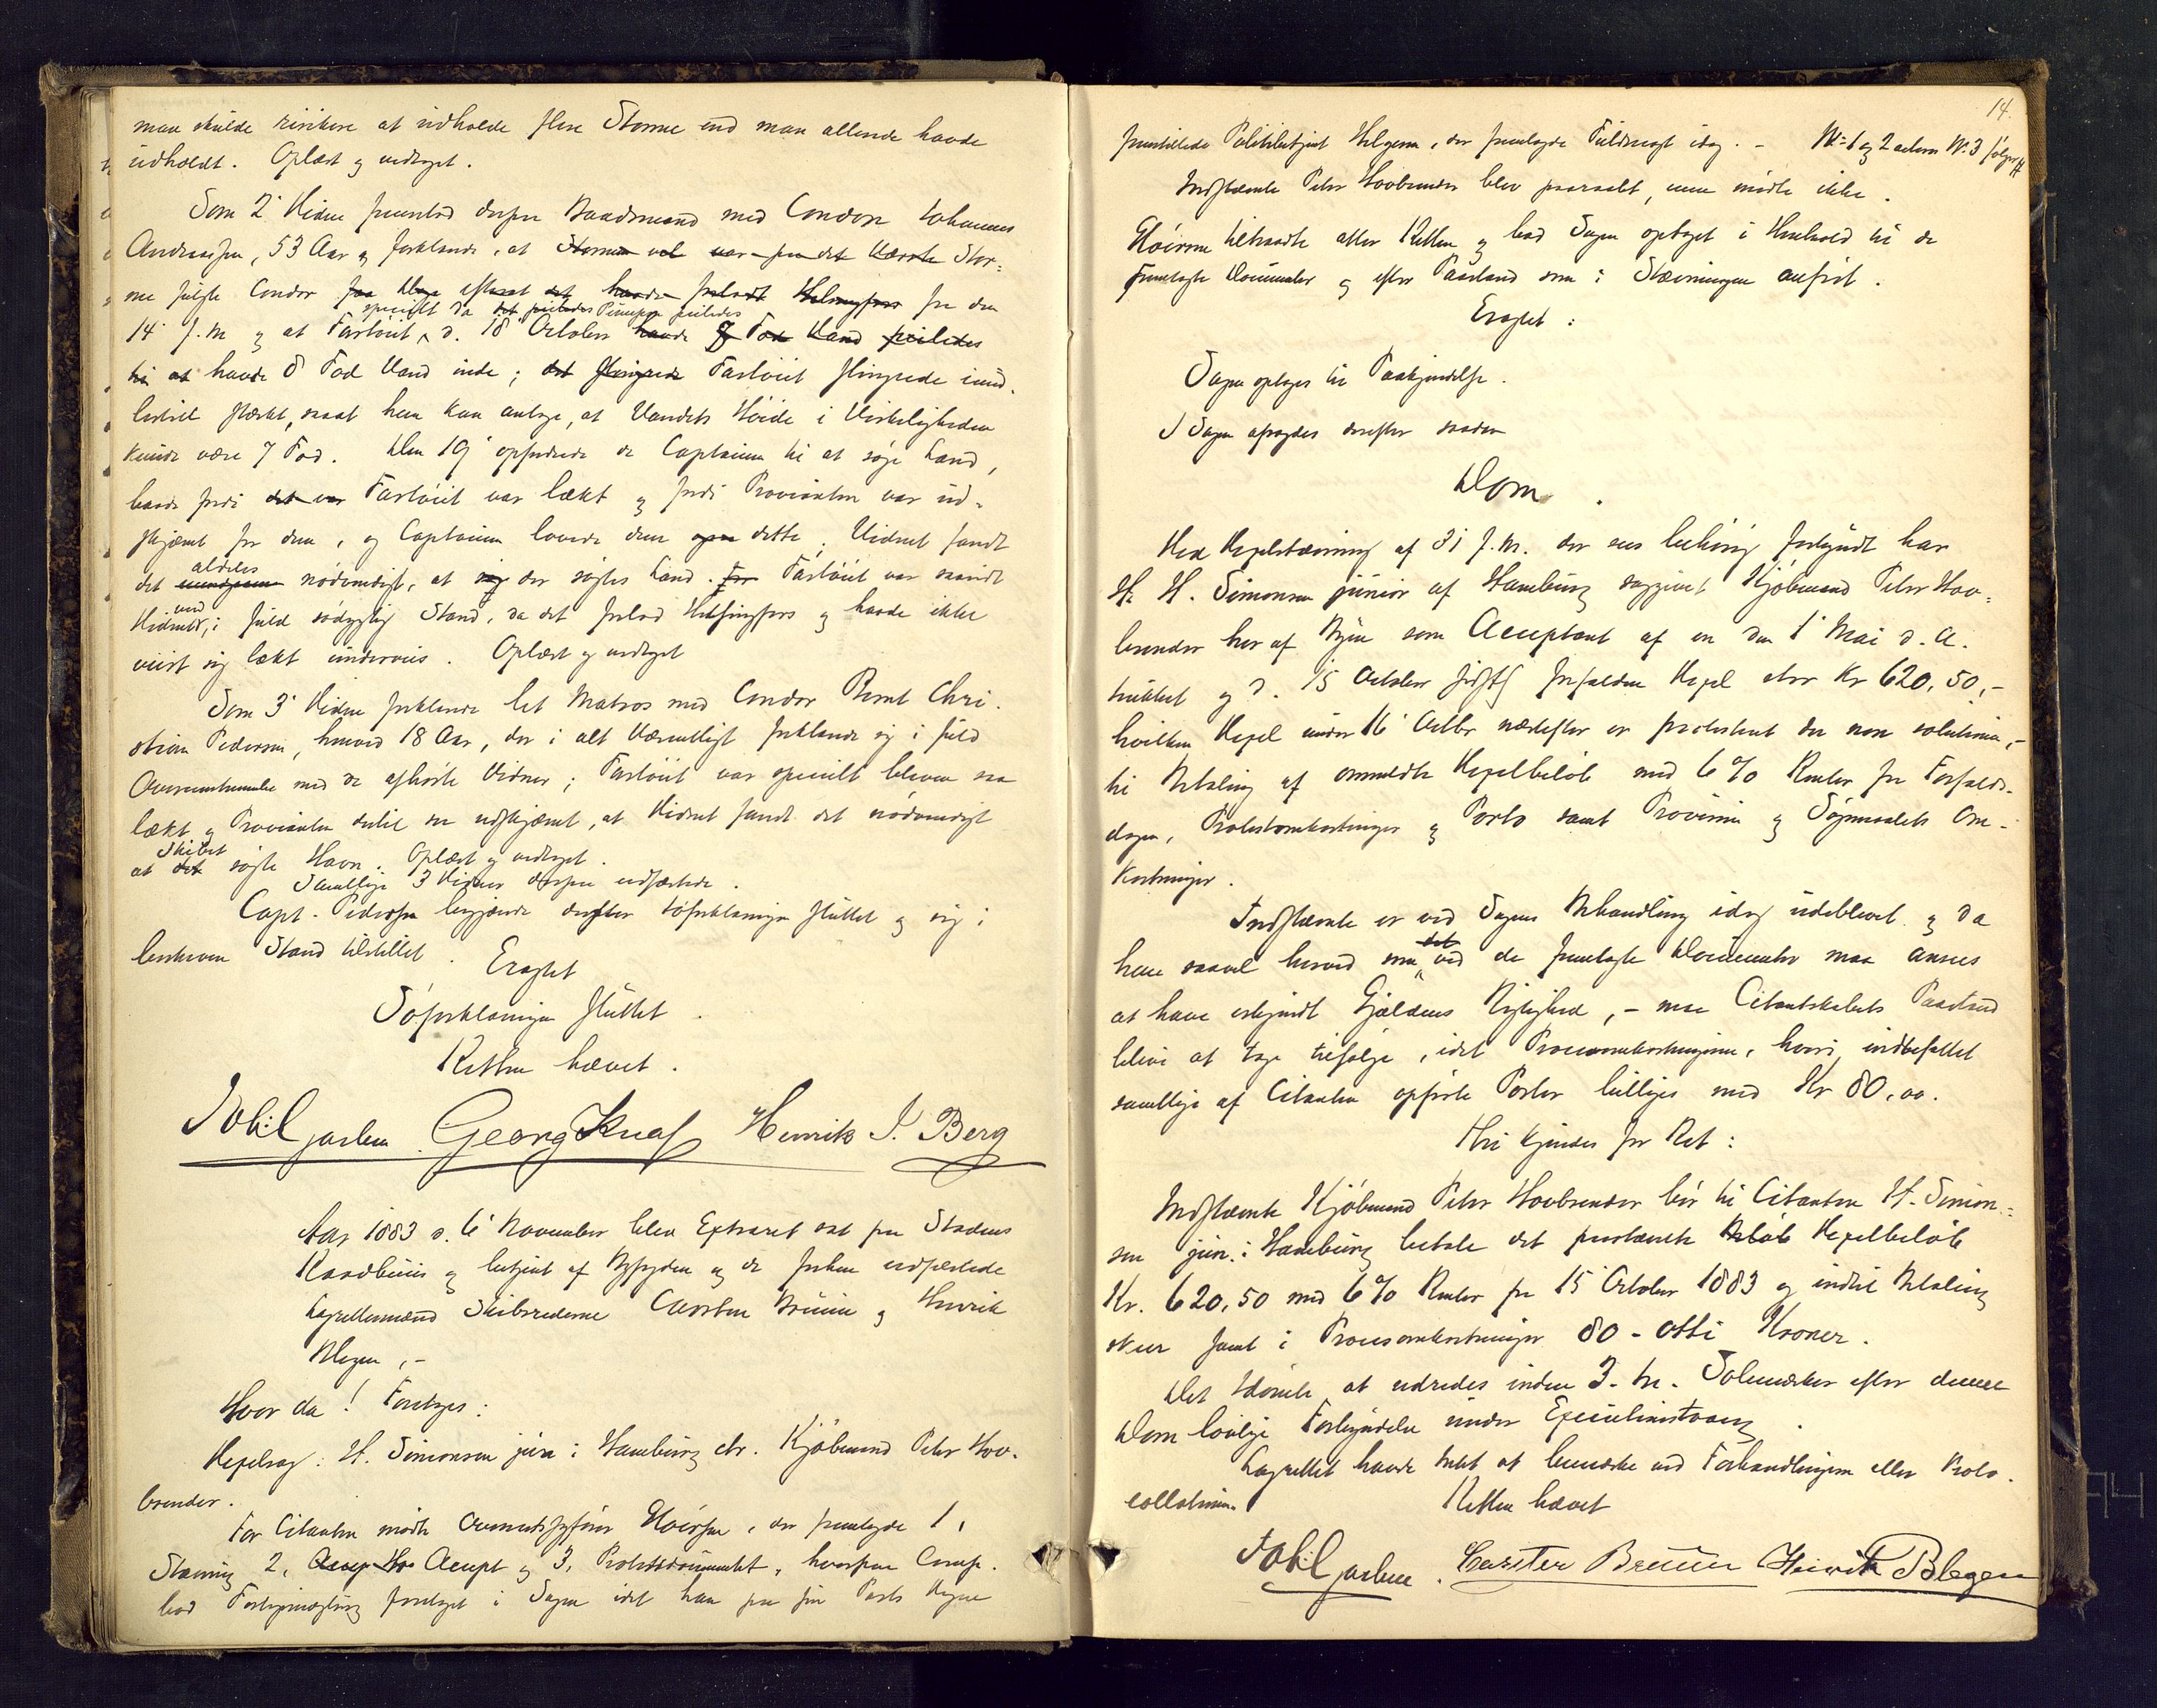 man skulde risikere at udholde flere Storme end man allerede havde
udholdt. Oplæst og vedtaget.
Som 2' Vidne fremstod derpaa Baadsmand med Condor Johannes
Andreassen, 53 Aar og forklarede, at Stormen vel var paa det Værste Stor=
me fulgte Condor efterat det havde forladt Helsingfors fra den
specielt da det peiledes Pumpen peiledes
14' f.M. og at Fartöiet d. 18' October havde 7 Fod Vand peiledes
til at havde 8 Fod Vand inde; det slingrede Fartöiet slingrede imid.
lertid stærkt, saaat han kan antage, at Vandets Höide i Virkeligheden
kunde være 7 Fod. Den 19' opfordrede de Captainen til at söge Land,
baade fordi det var Fartöiet var lækt og fordi Provianten var ud=
skjæmt for dem, og Captainen lovede dem dette. Vidnet fandt
aldeles
det nödvendigt, at der sögtes Land. Fartöiet var saavidt
Vidnet ved, i fuld södygtig Stand, da det forlod Helsingfors og havde ikke
viist sig lækt underveis. Oplæst og vedtaget
Som 3' Vidne forklarede Let Matros med Condor Bernt Chri.
stian Pedersen, henved 18 Aar, der i alt Væsentligt forklarede sig i fuld
Overensstemmelse med de afhörte Vidner; Fartöiet var specielt bleven saa
lækt og Provianten dertil saa udskjæmt, at Vidnet fandt det nödvendigt
Skibet
at det sögte Havn. Oplæst og vedtaget.
Samtlige 3 Vidner derpaa edfæstede.
Capt. Pedersen begjærede derefter Söforklaringen sluttet og sig i
beskreven Stand tilstillet.
Eragtet
Söforklaringen sluttet.
Retten hævet.
Georg Knaf Henrik J. Berg
Aar 1883 d. 6' November blev Extraret sat paa Stadens
Raadhuus og betjent af Byfogden og de forhen edfæstede
Lagrettesmænd Skibsrederne Carsten Bruun og Henrik
Blegen, -
Hvor da! Foretoges:
Vexelsag: H. Simonsen jun i Hamburg ctr. Kjöbmand Peter Hov.
brender.
For Citanten mödte Overretssagförer Höiesen, der fremlagde 1,
Stævning 2, Accept og 3, Protestdocumentet, hvorpaa Comp.
bad Forligsmægling foretaget i Sagen idet han paa sin Parts Vegne
14.
fremstillede Politibetjent Helgesen, der fremlagde Fuldmagt idag. - No 1 og 2 No 3 fölger
Indstævnte Peter Hovbrender blev paaraabt, men mödte ikke.
Höiesen tiltraadte atter Retten og bad Sagen optaget i Henhold til de
fremlagte Documenter og efter Paastand som i Stævningen anfört.
Eragtet:
Sagen optages til Paakjendelse.
I Sagen afsagdes derefter saadan
Dom.
Ved Vexelstævning af 31 f.M. der sees lovlig forkyndt har
Hr H. Simonsen junior af Hamburg sagsögt Kjöbmand Peter Hov=
brender her af Byen som Acceptant af en den 1' Mai d. A.
trukket og d. 15 October sidstl forfalden Vexel stor Kr 620,50,-
hvilken Vexel under 16' Octbr næstefter er protesteret de non solutione,-
til Betaling af ommeldte Vexelbelöb med 6% Renter fra Forfalds-
dagen, Protestomkostninger og Porto samt Provision og Sögsmaalets Om-
kostninger.
Indstævnte er ved Sagens Behandling idag udeblevet og da
det
han saavel herved som ved de fremlagte Documenter maa ansees
at have erkjendt Gjældens Rigtighed, - maa Citantskabets Paastand
blive at tage tilfölge, idet Procesomkostningerne, hvori indbefattet
samtlige af Citanten opförte Poster billiges med Kr 80,00.
Thi kjendes for Ret:
Indstævnte Kjöbmand Peter Hovbrender bör til Citanten H. Simon=
sen jun. i Hamburg betale det paastævnte Belöb Vexelbelöb
Kr. 620,50 med 6% Renter fra 15' October 1883 og indtil Betaling
skeer samt i Procesomkostninger 80 - otti Kroner.
Det Idömte at udredes inden 3 - tre - Solemærker efter denne
Doms lovlige Forkyndelse under Executionstvang.
Lagrettet havde Intet at bemærke ved Forhandlingen eller Proto-
collationen
Retten hævet
Carsten Bruun Henrik Blegen